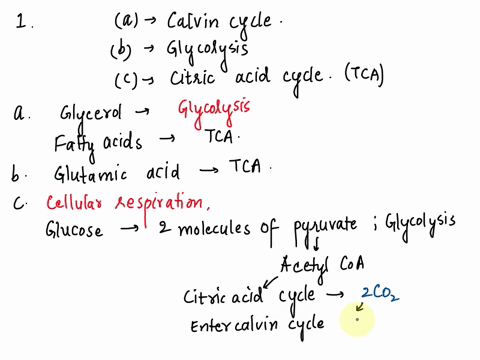 1. (a) → Calvin cycle.
(b) → Glycolysis
(c) → Citric acid cycle. (TCA)
a. Glycerol → Glycolysis
Fatty acids → TCA.
b. Glutamic acid → TCA.
c. Cellular respiration,
Glucose → 2 molecules of pyruvate ; Glycolysis
↓
Acetyl CoA
Citric acid cycle → 2CO2
Enter calvin cycle